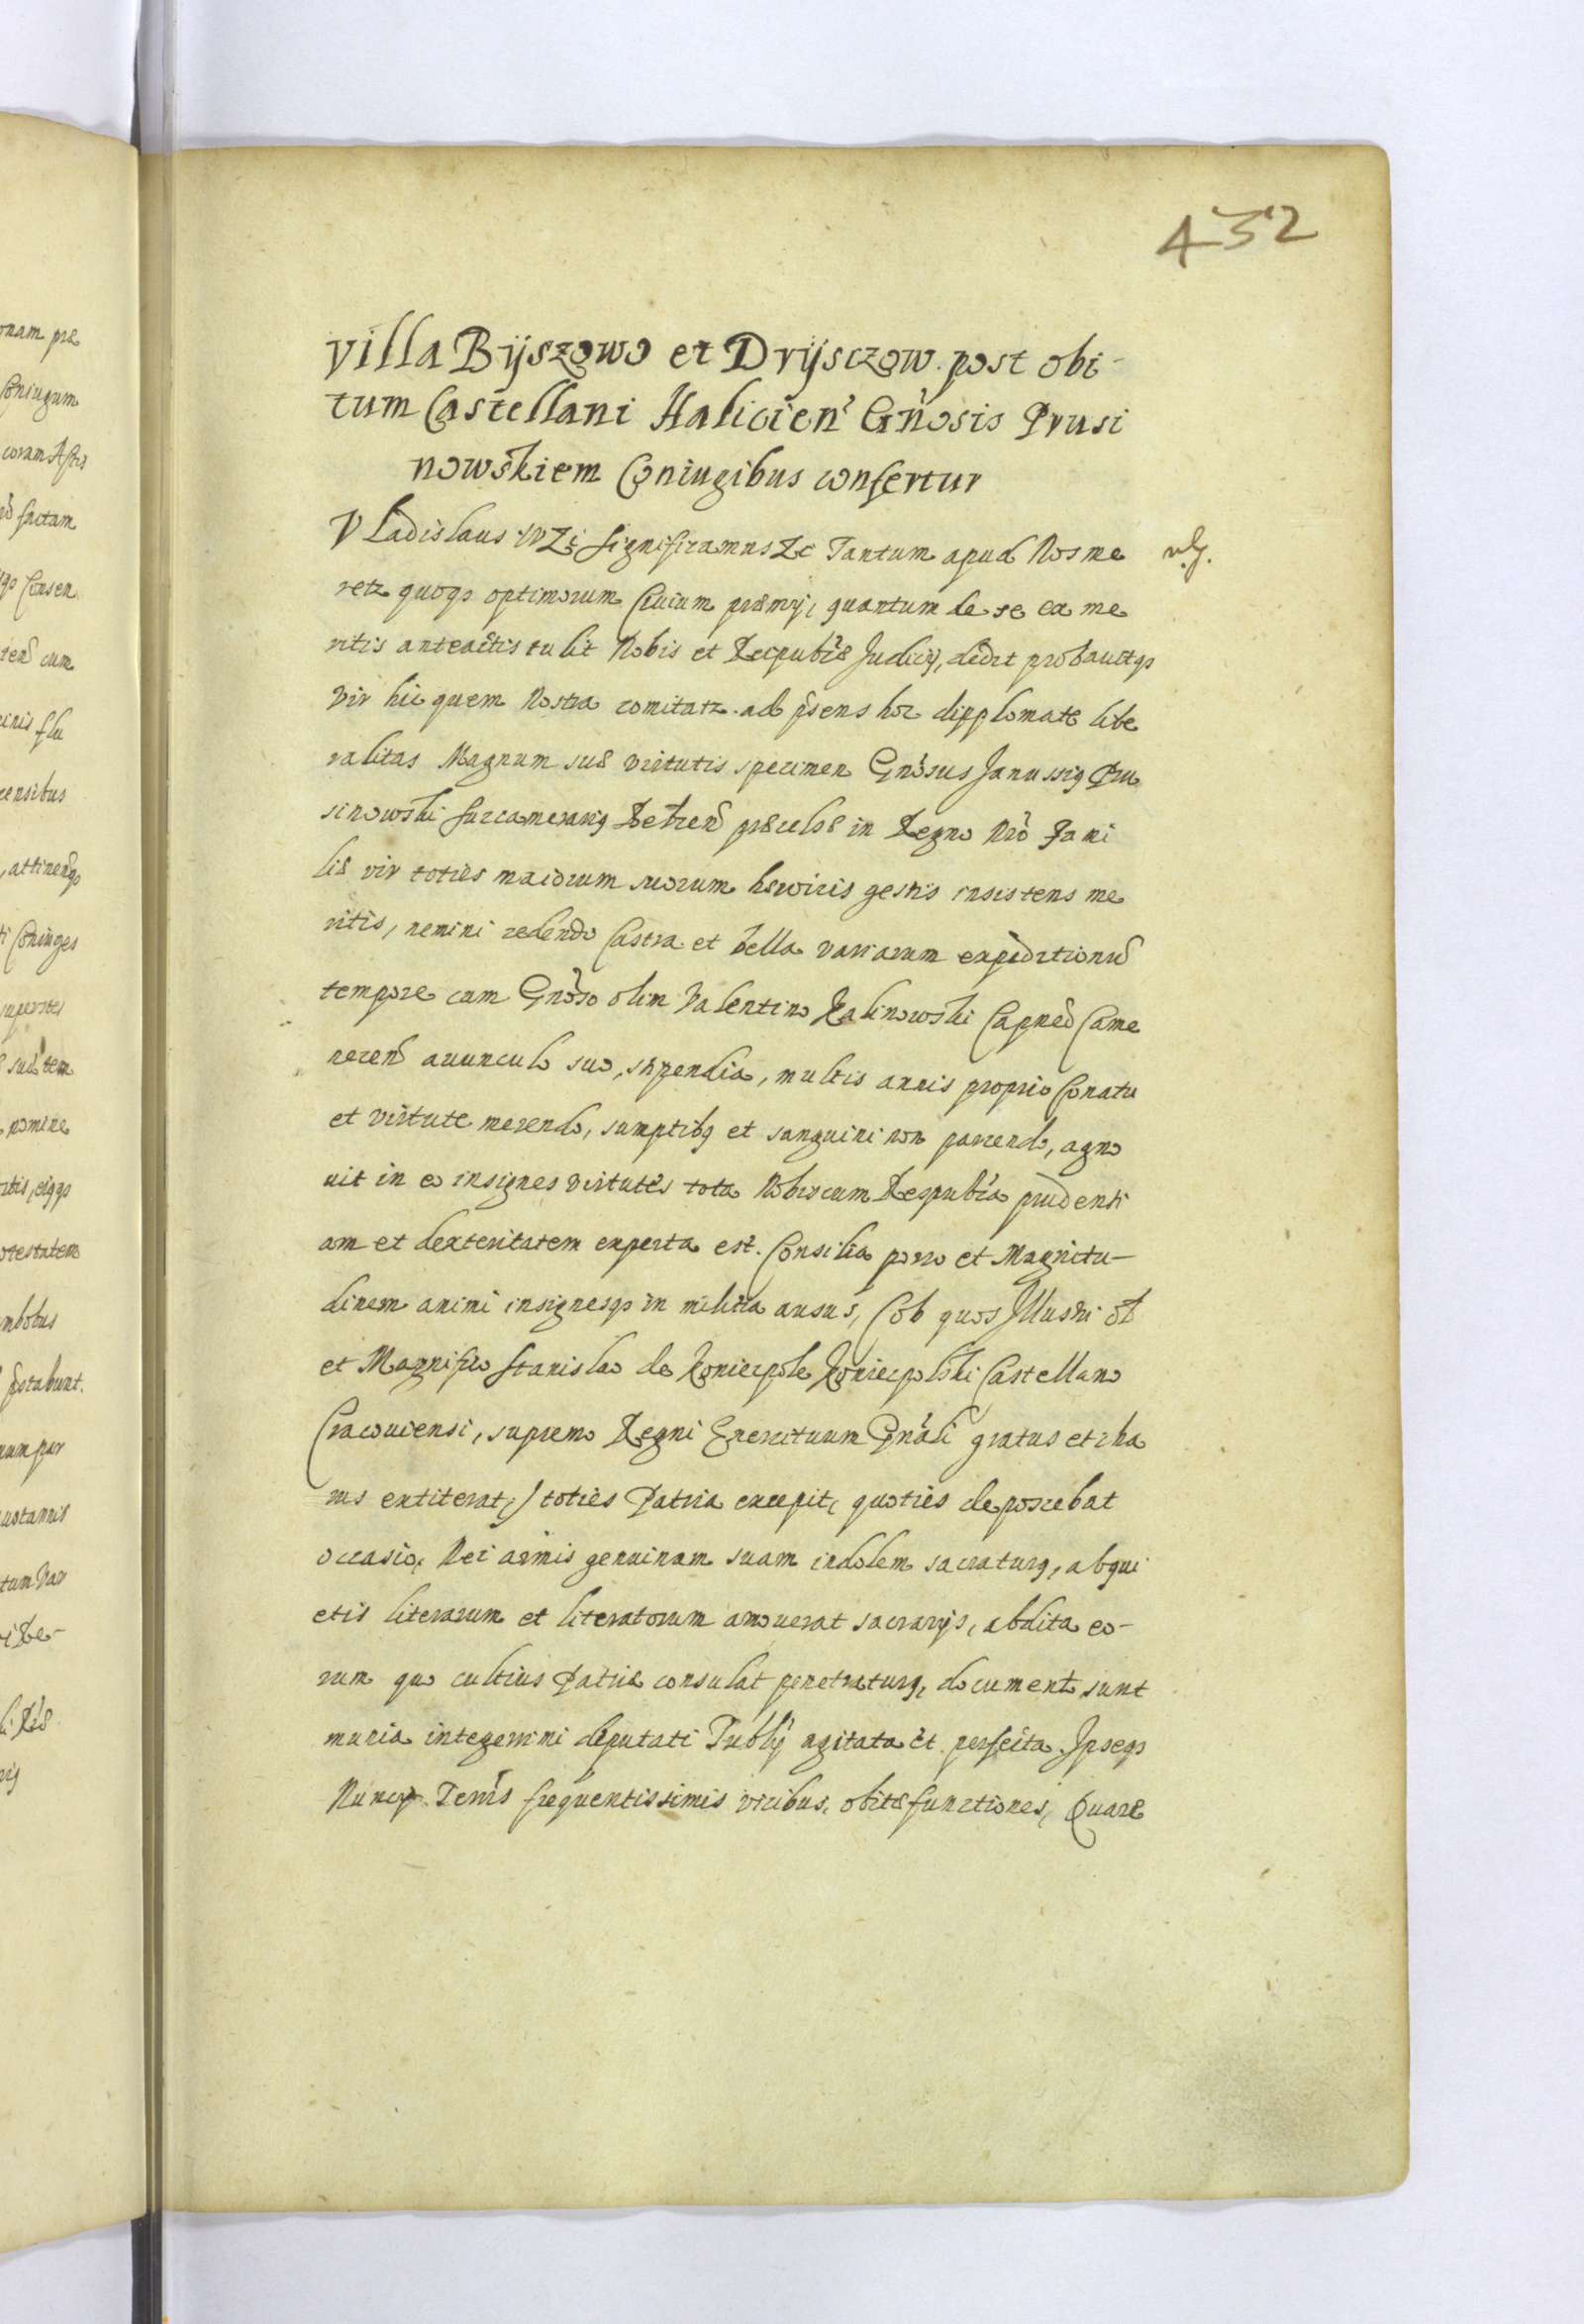 432
Villa Bijszowo et Drijsczow post obi-
tum Castellani Halicien̄ Gn̄osis Prusi
nowskiem Coniugibus confertur
Vladislaus IV &c significamus &c Tantum apud Nos me
retr quoq3 optimorum Civium præmij, quantum de se ex me
ritis anteactis tulit Nobis et Reipub̄æ Judicij, dedit probavitq3
Vir hic quem Nostra comitatr ad p̄sens hoc dipplomate libe
ralitas Magnum suæ virtutis specimen Gn̄osus Janussi9 Pru
sinowski succamerari9 Belzen̄ præcelsæ in Regno Nr̄o Fami
liæ vir toties maiorum suorum heroicis gestis insistens me
ritis, nemini cedendo Castra et bella variarum expeditionū
tempore cum Gn̄oso olim Valentino Kalinowski Capneo Came
necen̄ avunculo suo, stipendia, multis annis proprio Conatu
et virtute merendo, sumptib9 et sanguini non parcendo, agno
vit in eo insignes virtutes tota Nobiscum Respub̄a prudenti
am et dexteritatem experta est. Consilia porro et Magnitu-
dinem animi insignesq3 in militia ausus, (ob quos Illustri ol̄
et Magnifico Stanislao de Koniecpole Koniecpolski Castellano
Cracoviensi, supremo Regni Exercituum Gn̄ali gratus et cha
rus extiterat,) toties Patria excepit, quoties deposcebat
occasio, Nec armis genuinam suam indolem sacratur9, ab qui
etis literarum et literatorum amoverat sacrarijs, abdita eo-
rum quo cultius Patriæ consulat penetratur9, document sunt
munia integerrimi deputati Publ̄ij agitata et perfecta Ipseq3
Nuncij Terr̄is frequentissimis vicibus, obitæ functiones, Quare